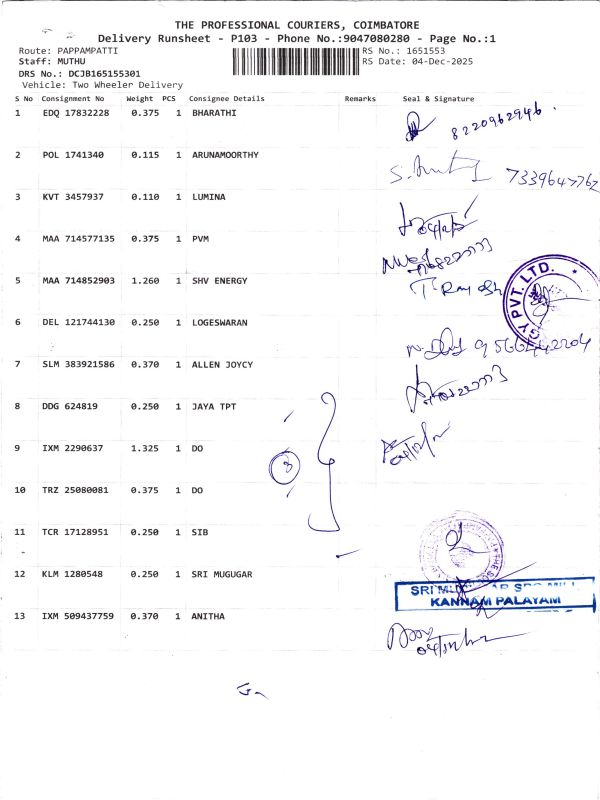 THE PROFESSIONAL COURIERS, COIMBATORE
Delivery Runsheet - P103 - Phone No.:9047080280 - Page No.:1
Route: PAPPAMPATTI RS No.: 1651553
Staff: MUTHU RS Date: 04-Dec-2025
DRS No.: DCJB165155301
Vehicle: Two Wheeler Delivery
S No Consignment No Weight PCS Consignee Details Remarks Seal & Signature
1 EDQ 17832228 0.375 1 BHARATHI 8220962946
2 POL 1741340 0.115 1 ARUNAMOORTHY
3 KVT 3457937 0.110 1 LUMINA
4 MAA 714577135 0.375 1 PVM
5 MAA 714852903 1.260 1 SHV ENERGY
GY PVT. LTD.
6 DEL 121744130 0.250 1 LOGESWARAN
7 SLM 383921586 0.370 1 ALLEN JOYCY
8 DDG 624819 0.250 1 JAYA TPT
9 IXM 2290637 1.325 1 DO
3
10 TRZ 25080081 0.375 1 DO
11 TCR 17128951 0.250 1 SIB
12 KLM 1280548 0.250 1 SRI MUGUGAR
KANNAM PALAYAM
13 IXM 509437759 0.370 1 ANITHA